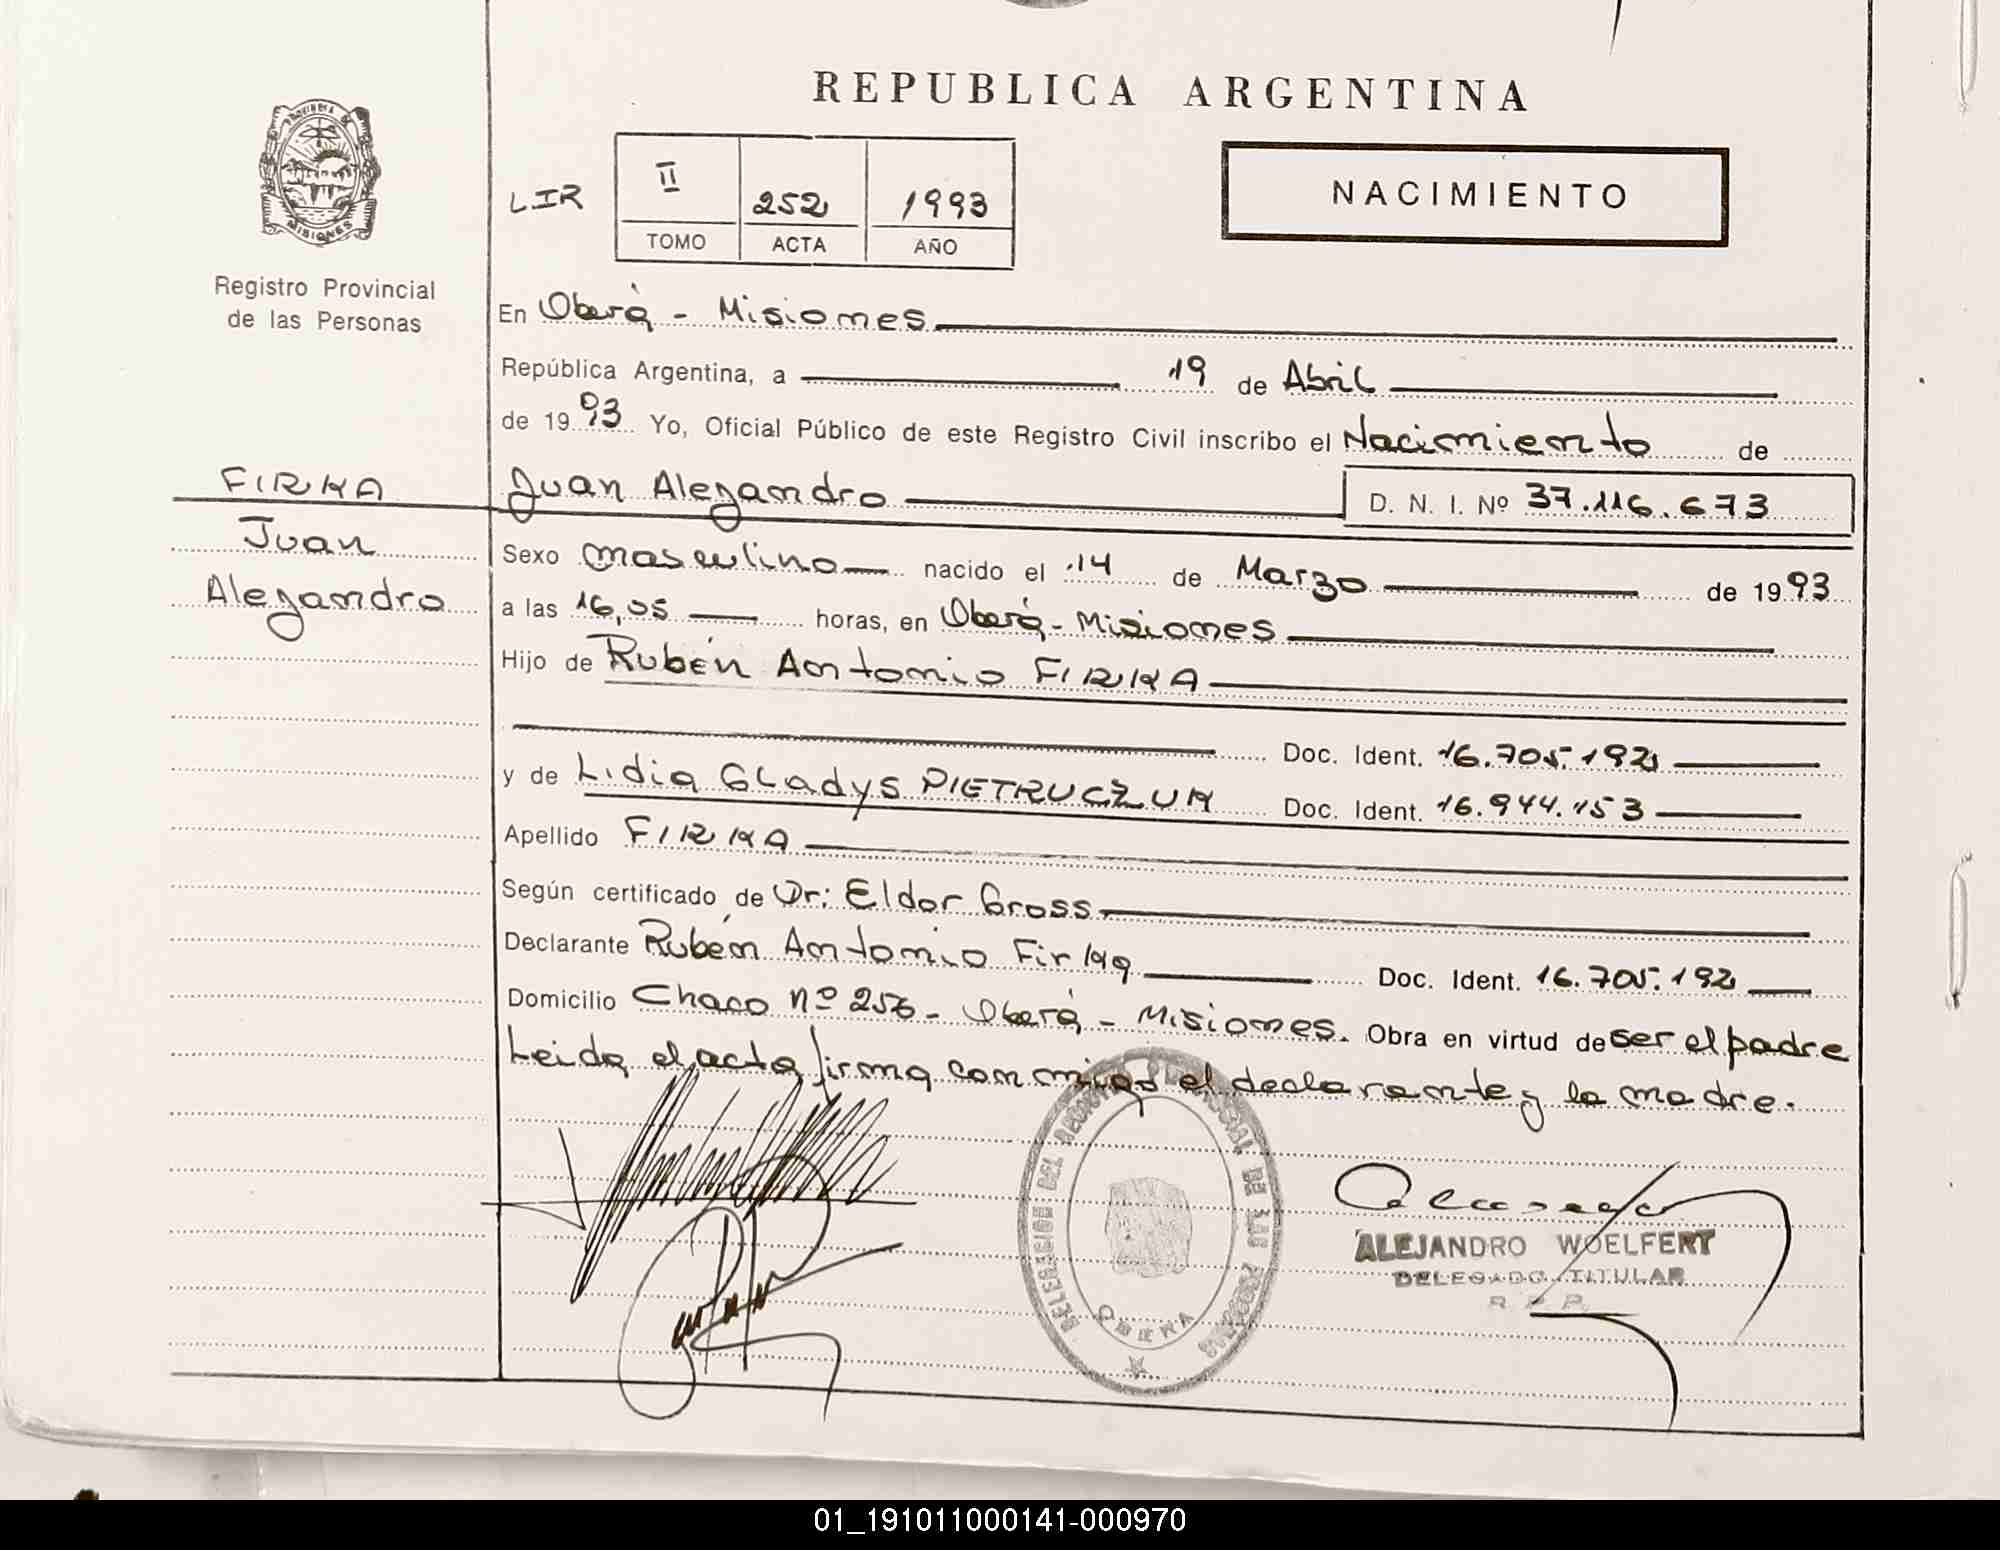 REPUBLICA ARGENTINA
LIR
II 252 1993
TOMO ACTA AÑO
NACIMIENTO
MISIONES
Registro Provincial
de las Personas
FIRKA
Juan
Alejandro
En Oberá - Misiones
República Argentina, a 19 de Abril
de 1993 Yo, Oficial Público de este Registro Civil inscribo el Nacimiento de
Juan Alejandro D. N. I. Nº 37.116.673
Sexo masculino nacido el 14 de Marzo de 1993
a las 16,05 horas, en Oberá - Misiones
Hijo de Rubén Antonio FIRKA
Doc. Ident. 16.705.192
y de Lidia Gladys PIETRUCZUK Doc. Ident. 16.944.153
Apellido FIRKA
Según certificado de Dr: Eldor Gross
Declarante Rubén Antonio Firka Doc. Ident. 16.705.192
Domicilio Chaco nº 256 - Oberá - Misiones. Obra en virtud de ser el padre
Leida el acta firma conmigo el declarante y la madre.
DELEGACION DEL REGISTRO PROVINCIAL DE LAS PERSONAS
OBERA
ALEJANDRO WOELFERT
DELEGADO TITULAR
R. P. P.
01_191011000141-000970